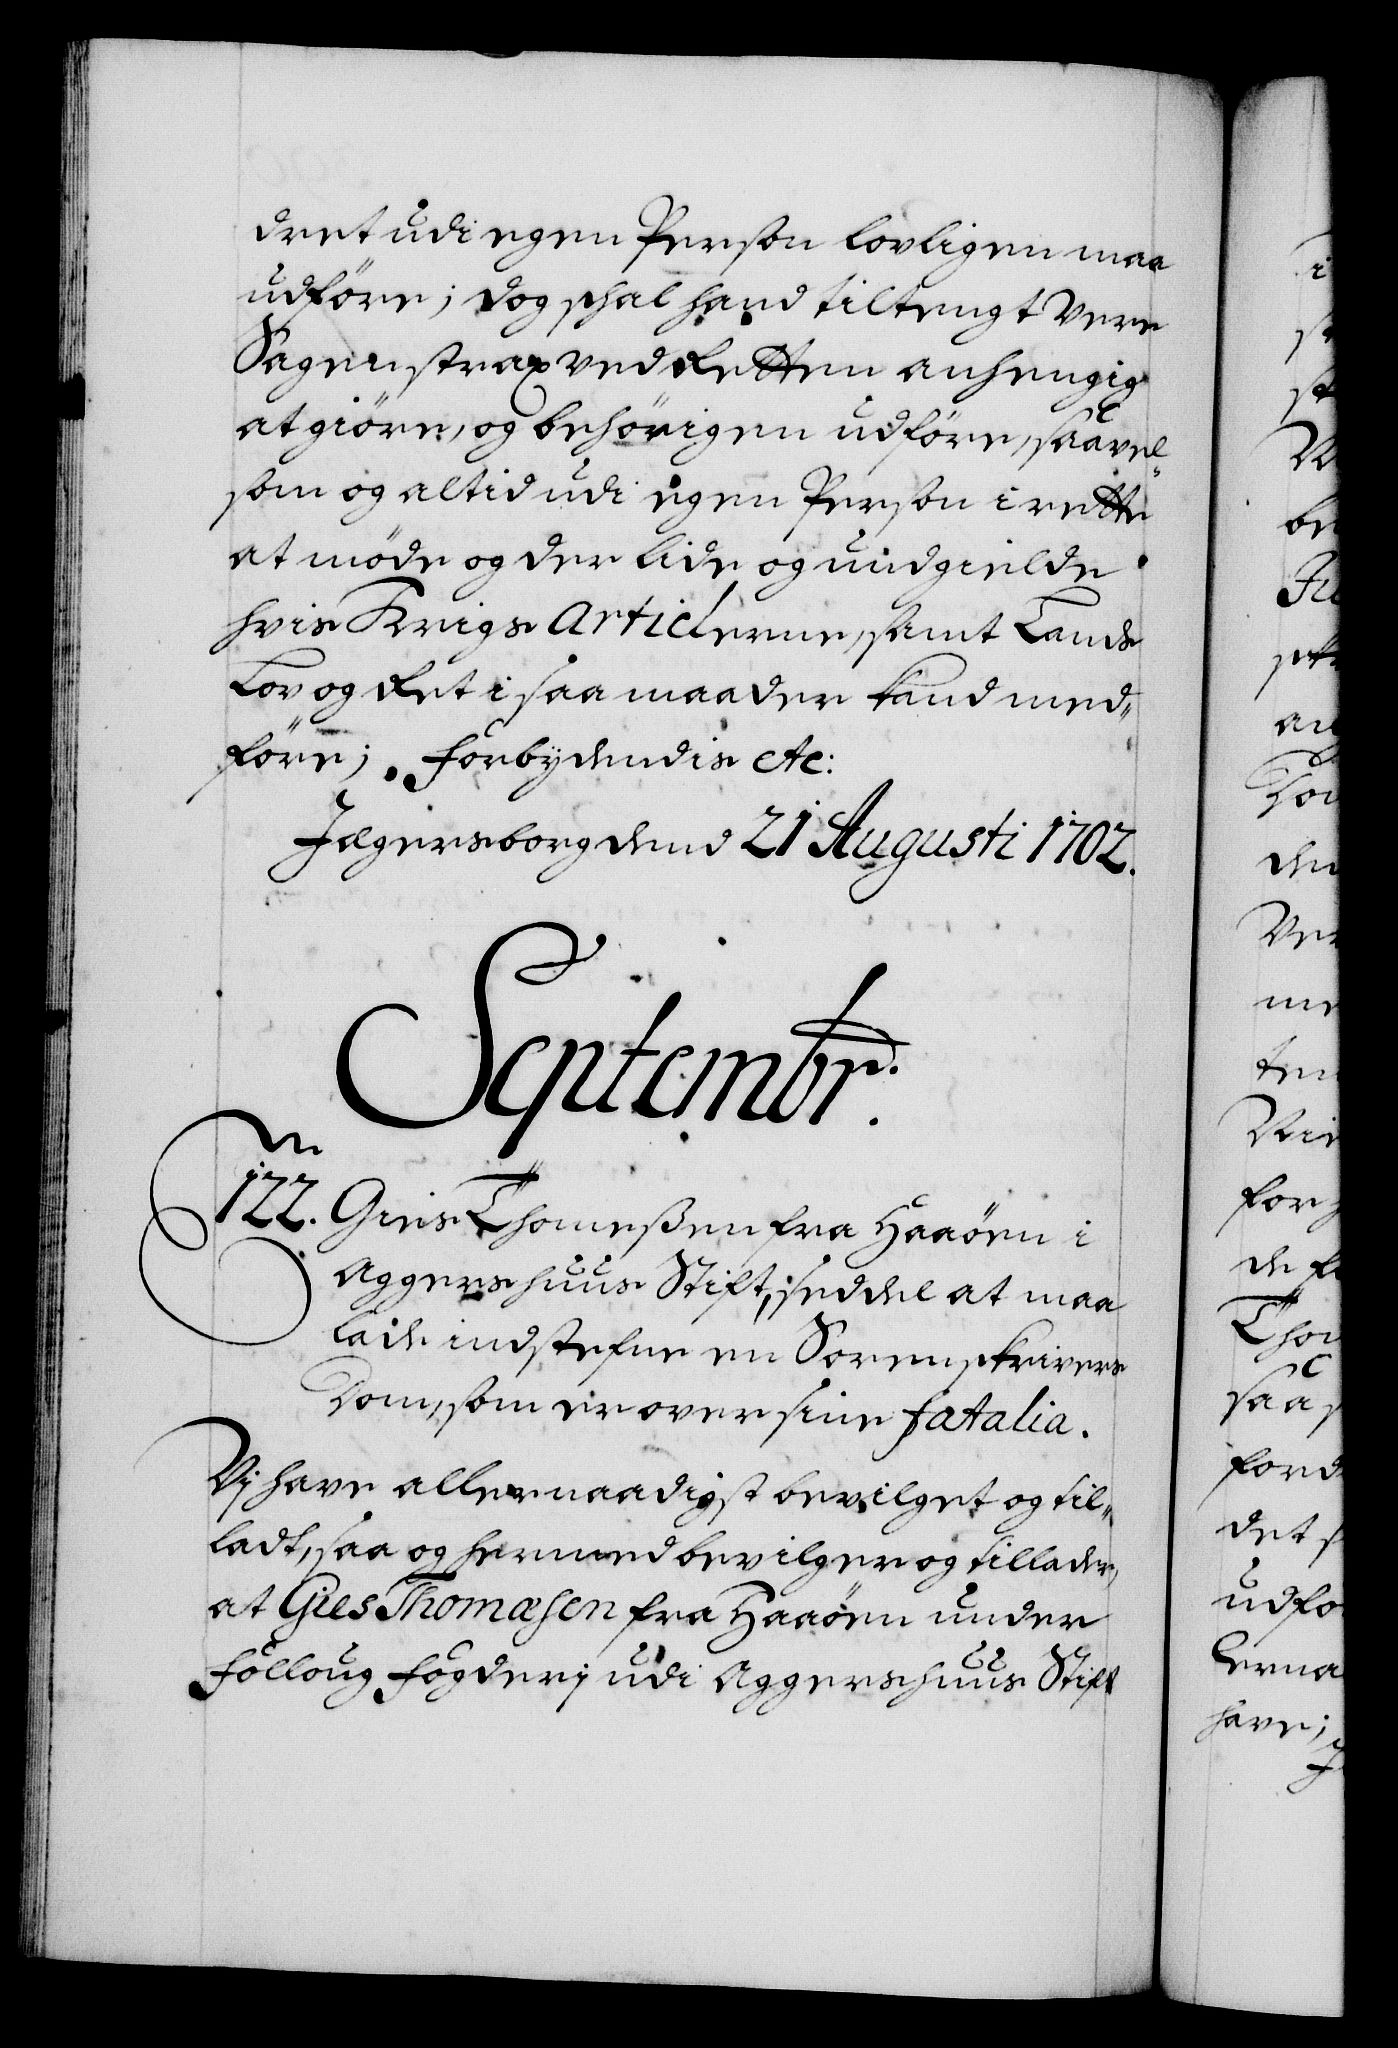 dret udi egen Person lovligen maa
udføre; dog schal hand tiltengt vere
Sagen strax ved Retten anhengig
at giöre, og behörigen udföre, saavel
som og altid udi egen Person i rette
at möde og der lide og undgielde
hvis Krigs Articlerne, samt Lands
Lov og Ret i saa maader kand med„
före; forbydendis etc:
Jægersborg dend 21 Augusti 1702.
Septembr.
122. Gies Thomeßen fra Haaöen i
Aggershuus Stift, seddel at maa
lade indstefne en Sorenskrivers
Dom, som er over sine fatalia.
Vj have allernaadigst bevilget og til„
ladt, saa og hermed bevilger og tillader,
at Gies Thomæsen fra Haaöen under
Folloug fogderj udi Aggershuus Stift